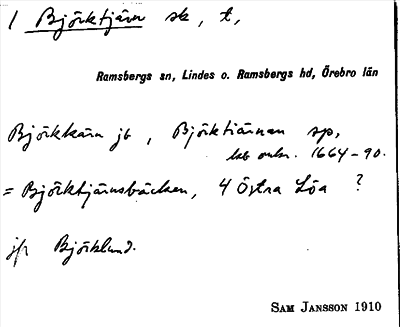 1 Björktjärn sk, t,
Ramsbergs sn, Lindes o. Ramsbergs hd, Örebro län
Björkkärn jb, Björktiärnan sp,
1664-90.
= Björktjärnsbäcken, 4 Östra Löa ?
jfr Björklund.
SAM JANSSON 1910